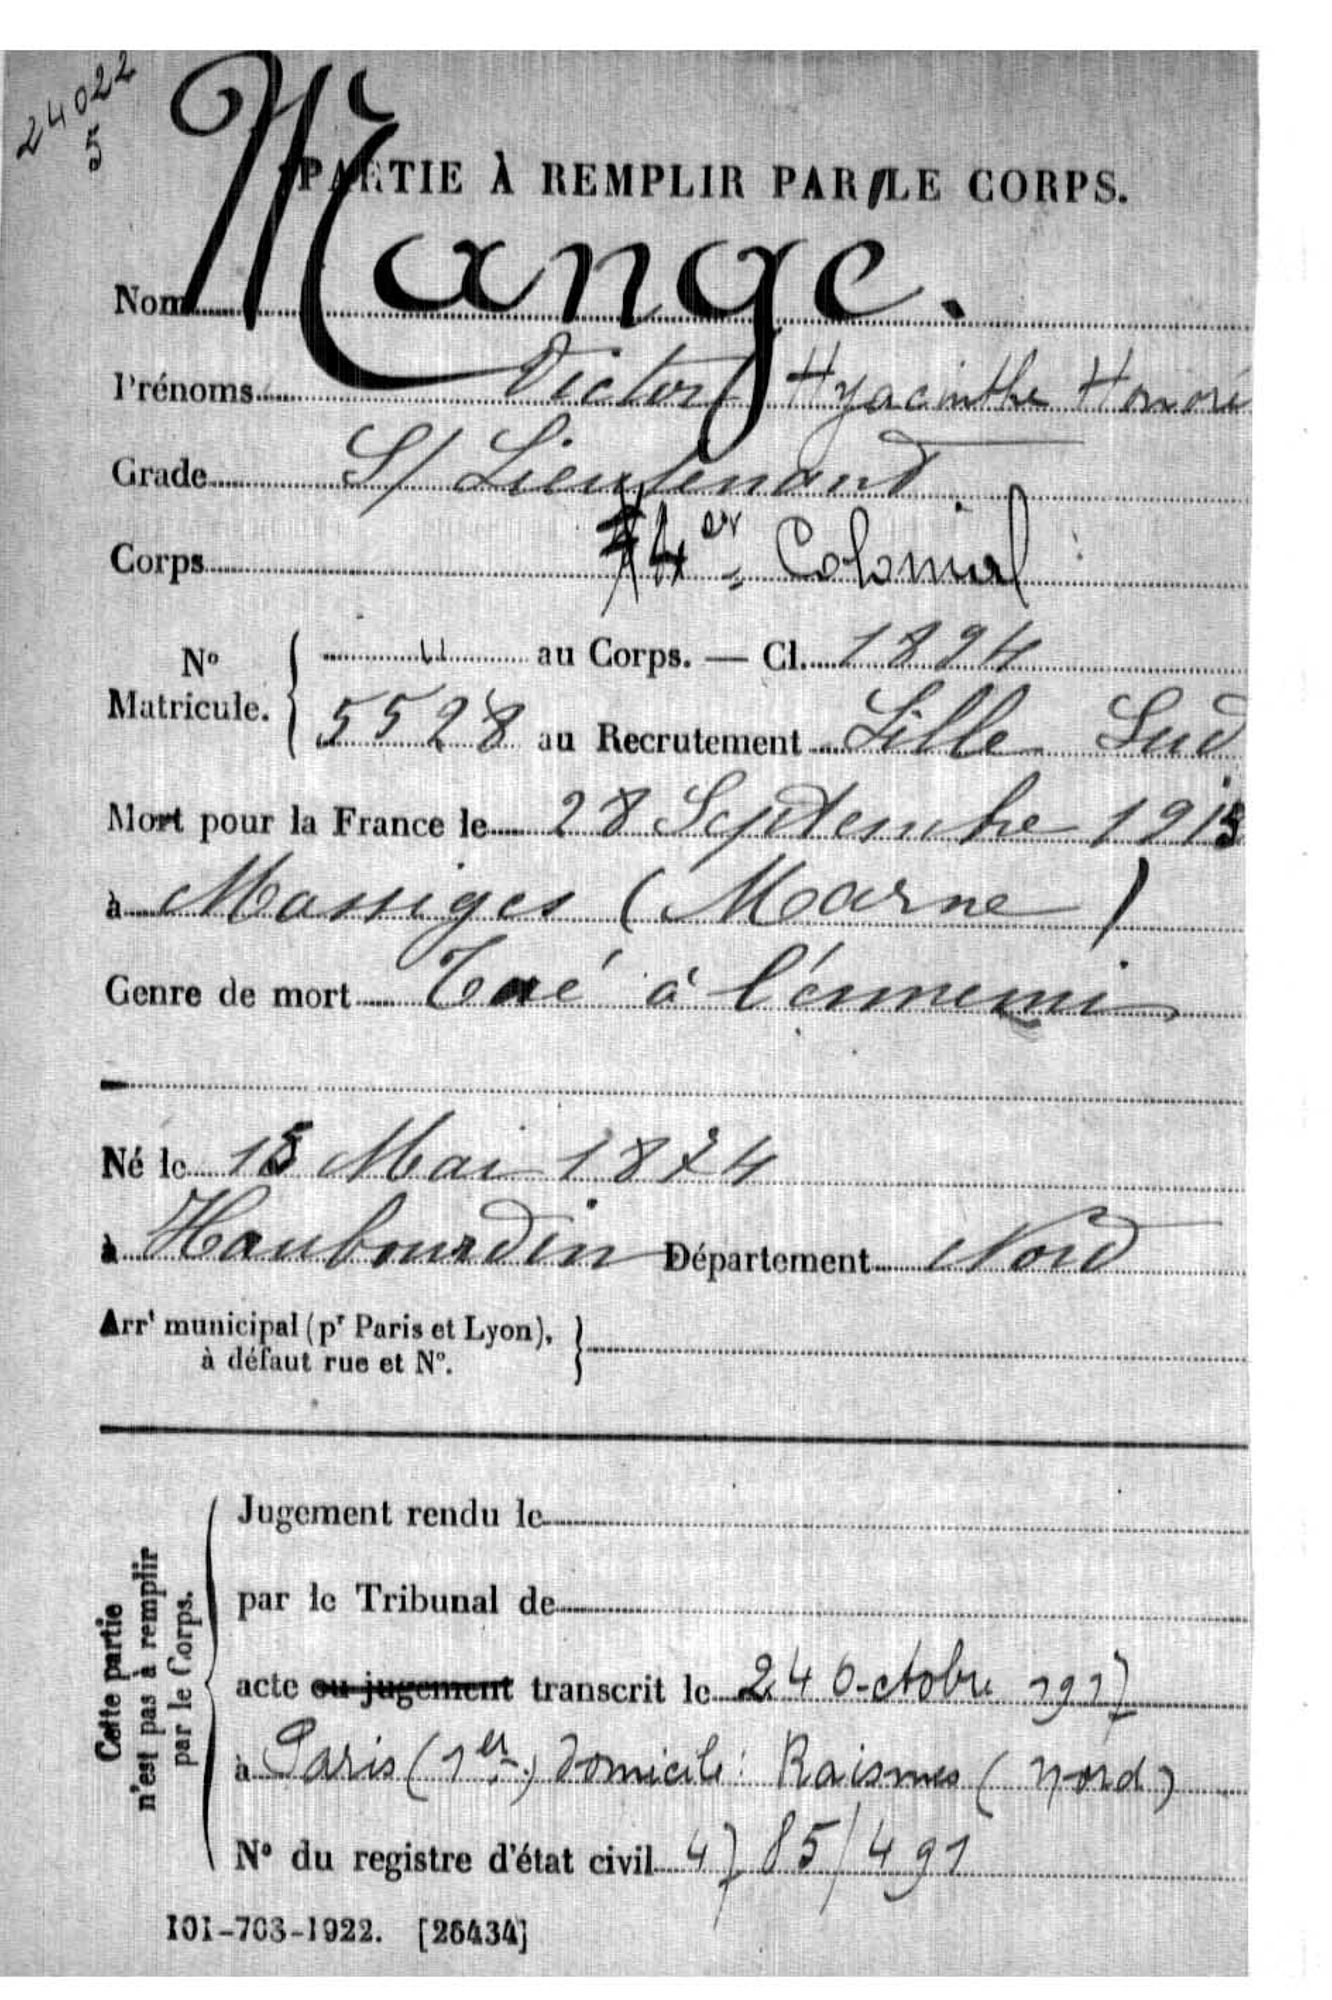 24022
5
PARTIE À REMPLIR PAR LE CORPS.
Nom Mange.
Prénoms Victor Hyacinthe Honoré
Grade S/ Lieutenant
Corps 4er Colonial
No
Matricule.
" au Corps. — Cl. 1894
5528 au Recrutement Lille Sud
Mort pour la France le 28 Septembre 1915
à Massiges (Marne)
Genre de mort Tué à l'énnemi
Né le 15 Mai 1874
à Haubourdin Département Nord
Arrt municipal (pr Paris et Lyon),
à défaut rue et No.
Cette partie
n'est pas à remplir
par le Corps.
Jugement rendu le
par le Tribunal de
acte ou jugement transcrit le 24 Octobre 1917
à Paris (1er) Domicile: Raismes (Nord)
No du registre d'état civil 4785/491
101-703-1922. [26434]